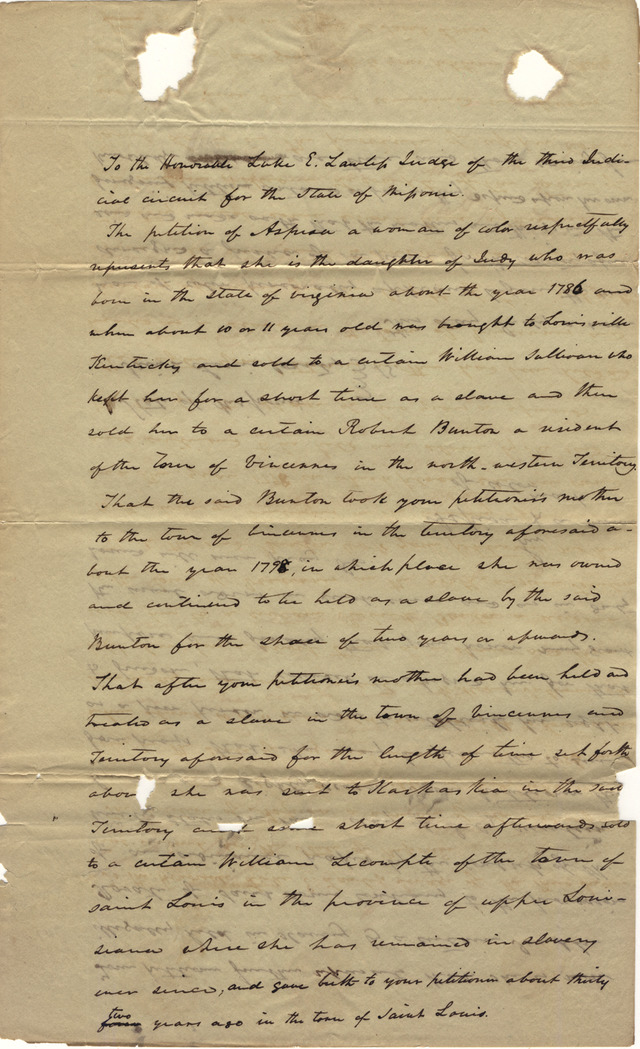 To the Honorable Luke E. Lawless Judge of the third Judi-
cial circuit for the State of Missouri.
The petition of Aspisa a woman of color respectfully
represents that she is the daughter of Judy who was
born in the state of virginia about the year 1786 and
when about 10 or 11 years old was brought to Louisville
Kentucky and sold to a certain William Sullivan who
kept her for a short time as a slave and then
sold her to a certain Robert Bunton a resident
of the Town of Vincennes in the north-western Territory.
That the said Bunton took your petitioner's mother
to the town of Vincennes in the territory aforesaid a-
bout the year 1798, in which place she was owned
and continued to be held as a slave by the said
Bunton for the space of two years or upwards.
That after your petitioner's mother had been held and
treated as a slave in the town of Vincennes and
Territory aforesaid for the length of time set forth
above she was sent to Kaskaskia in the said
Territory and some short time afterwards sold
to a certain William Lecompte of the town of
saint Louis in the province of upper Loui-
siana where she has remained in slavery
ever since, and gave birth to your petitioner about thirty
two years ago in the town of Saint Louis.